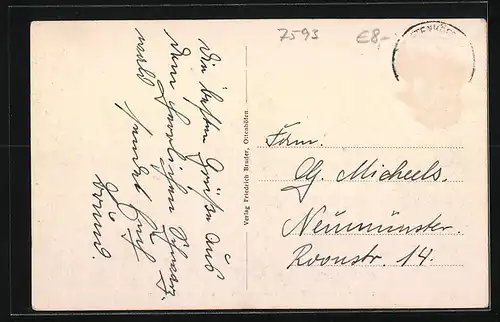 7593
€8,-
die besten Grüße aus
dem herrlichen Schwarz-
wald sendet Euch
Verlag Friedrich Bruder, Ottenhöfen
Fam.
Michaels.
Neumünster.
Roonstr. 14.